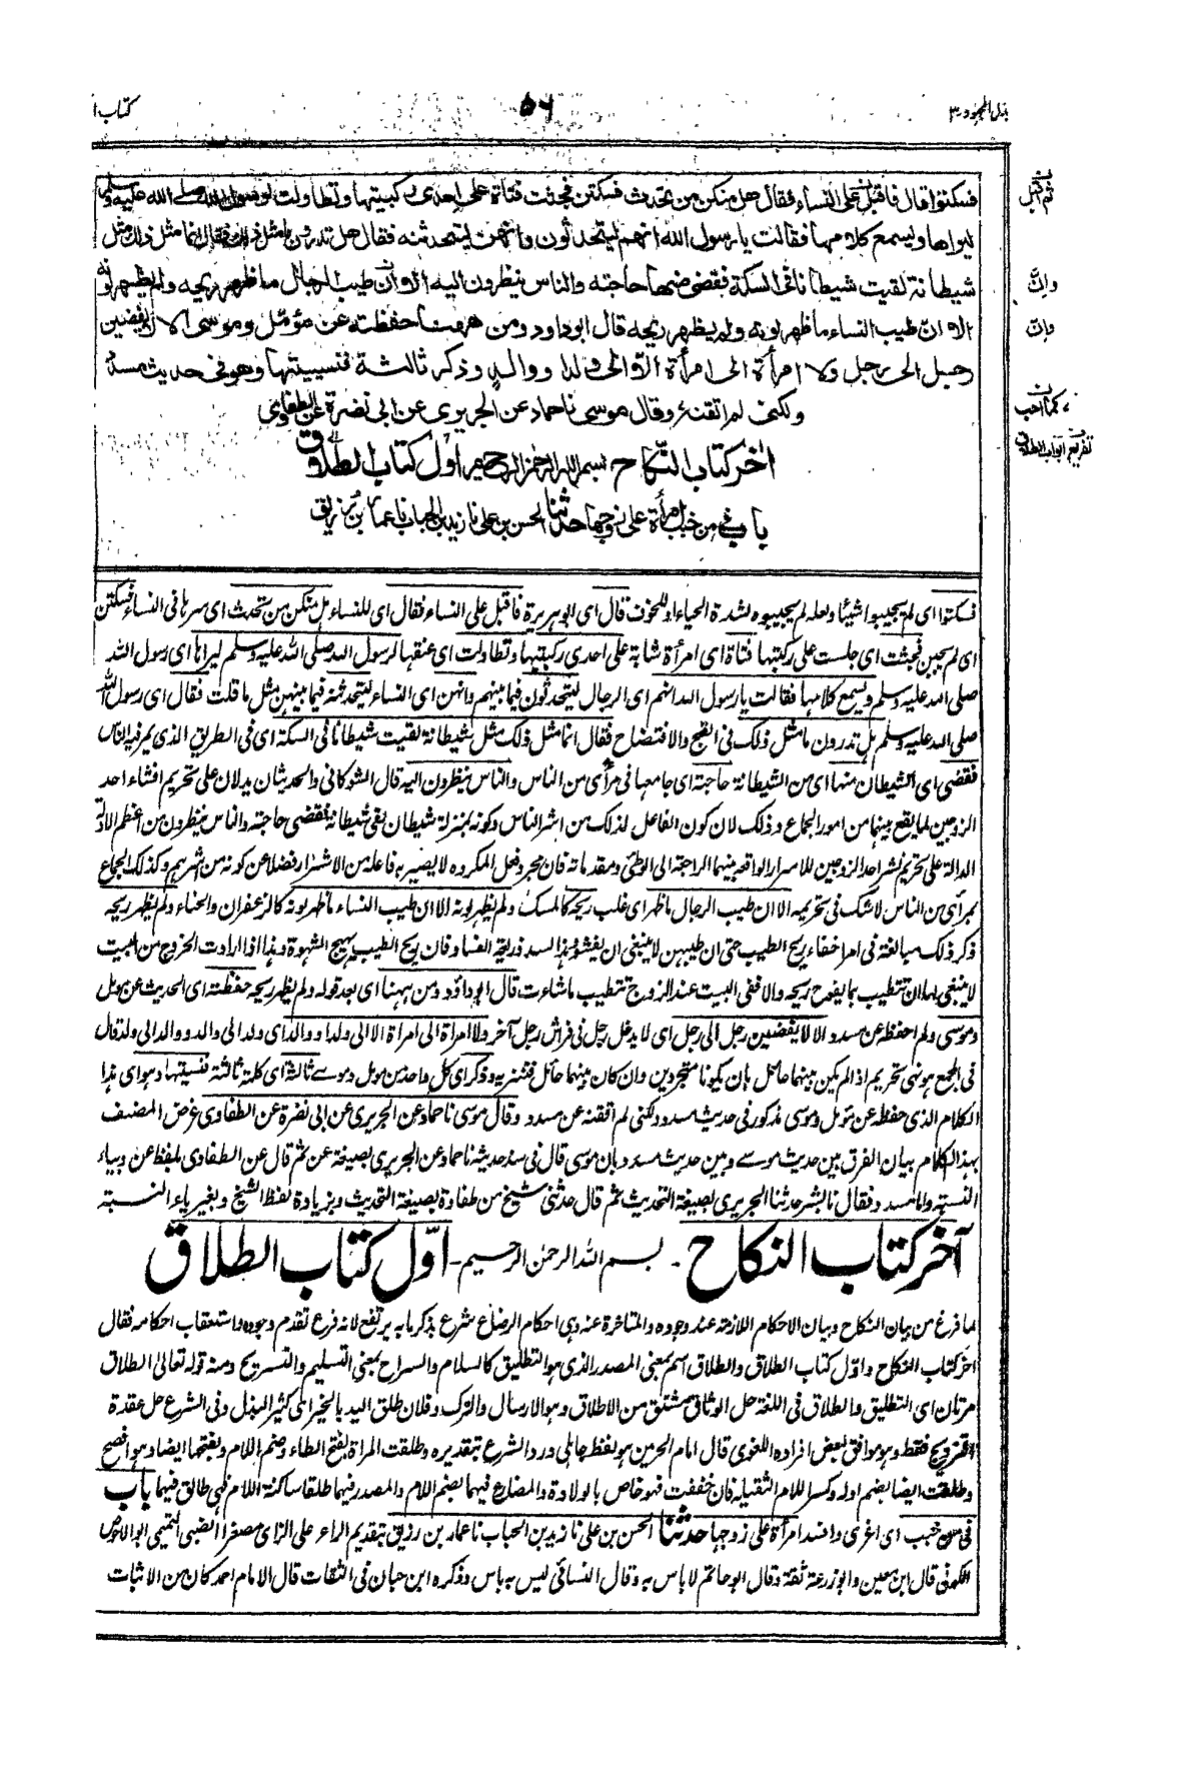 بذل المجهود ٣
٥٦
كتاب ا
فسكتوا قال فاقبل على النساء فقال هل منكن من تحدث فسكتن فجثت فتاة على احدى ركبتيها وتطاولت لرسول الله صلى الله عليه وسلم
ليراها ويسمع كلامها فقالت يا رسول الله انهم ليتحدثون وانهن ليتحدثنه فقال هل تدرون ما مثل ذلك فقال انما مثل ذلك مثل
شيطانة لقيت شيطانا فى السكة فقضى منها حاجته والناس ينظرون اليه الا وان طيب الرجال ما ظهر ريحه ولم يظهر لونه
الا ان طيب النساء ما ظهر لونه ولم يظهر ريحه قال ابو داود ومن ههنا حفظته عن مؤمل وموسى الا لا يفضين
رجل الى رجل ولا امرأة الى امرأة الا الى ولد او والد وذكر ثالثة فنسيتها وهو فى حديث مسدد
ولكنى لم اتقنه وقال موسى نا حماد عن الجريرى عن ابى نضرة عن الطفاوى
اٰخر كتاب النكاح بسم الله الرحمن الرحيم اول كتاب الطلاق
باب فى من خبب امرأة على زوجها حدثنا الحسن بن على نا زيد بن الحباب نا عمار بن رزيق
ثم اقبل
وانّ
وانّ
كما احب
تفريع ابواب الطلاق
فسكتوا اى لم يجيبوا شيئا ولعله لم يجيبوه لشدة الحياء او للخوف قال اى ابو هريرة فاقبل على النساء فقال اى للنساء هل منكن من تحدث اى سرها فى النساء فسكتن
اى لم يجبن فجثت اى جلست على ركبتها فتاة اى امرأة شابة على احدى ركبتيها وتطاولت اى عنقها لرسول الله صلى الله عليه وسلم ليراها اى رسول الله
صلى الله عليه وسلم ويسمع كلامها فقالت يا رسول الله انهم اى الرجال ليتحدثون فيما بينهم وانهن اى النساء ليتحدثنه فيما بينهن مثل ما قلت فقال اى رسول الله
صلى الله عليه وسلم هل تدرون ما مثل ذلك فى القبح والافتضاح فقال انما مثل ذلك مثل شيطانة لقيت شيطانا فى السكة اى فى الطريق الذى يمر فيه الناس
فقضى اى الشيطان منها اى من الشيطانة حاجته اى جامعها فى مرأى من الناس والناس ينظرون اليه قال الشوكانى والحديثان يدلان على تحريم افشاء احد
الزوجين لما يقع بينهما من امور الجماع وذلك لان كون الفاعل لذلك من اشر الناس وكونه بمنزلة شيطان لقى شيطانة فقضى حاجته والناس ينظرون من اعظم الادلة
الدالة على تحريم نشر احد الزوجين للاسرار الواقعة بينهما الراجعة الى الوطئ ومقدماته فان مجرد فعل المكروه لا يصير به فاعله من الاشرار فضلا عن كونه من شرهم وكذلك الجماع
بمرأى من الناس لا شك فى تحريمه الا ان طيب الرجال ما ظهر اى غلب ريحه كالمسك ولم يظهر لونه الا ان طيب النساء ما ظهر لونه كالزعفران والحناء ولم يظهر ريحه
ذكر ذلك مبالغة فى امر اخفاء ريح الطيب حتى ان طيبهن لا ينبغى ان يفشو وهذا السد ذريعة الفساد فان ريح الطيب يهيج الشهوة وهذا اذا ارادت الخروج من البيت
لا ينبغى لها ان تتطيب بما يفوح ريحه والا ففى البيت عند الزوج تتطيب ما شاءت قال ابو داؤد ومن ههنا اى بعد قوله ولم يظهر ريحه حفظته اى الحديث عن مومل
وموسى ولم احفظه عن مسدد الا لا يفضين رجل الى رجل اى لا يدخل رجل فى فراش رجل آخر ولا امرأة الى امرأة الا الى ولد او والد اى ولد الى والد ووالد الى ولد قال
فى المجمع هو نهى تحريم اذا لم يكن بينهما حائل بان يكونا متجردين وان كان بينهما حائل فتنزيه وذكر اى كل واحد من مومل وموسى ثالثة اى كلمة ثالثة فنسيتها وهو اى هذا
الكلام الذى حفظه عن مؤمل وموسى مذكور فى حديث مسدد ولكنى لم اتقنه عن مسدد وقال موسى نا حماد عن الجريرى عن ابى نضرة عن الطفاوى غرض المصنف
بهذا الكلام بيان الفرق بين حديث موسى وبين حديث مسدد بان موسى قال فى سند حديثه نا حماد عن الجريرى بصيغة عن ثم قال عن الطفاوى بلفظ عن وبياء
النسبة واما مسدد فقال نا بشر حدثنا الجريرى بصيغة التحديث ثم قال حدثنى شيخ من طفاوة بصيغة التحديث وبزيادة لفظ الشيخ وبغير ياء النسبة
آخر كتاب النكاح ۔ بسم الله الرحمن الرحيم ۔ اوّل كتاب الطلاق
لما فرغ من بيان النكاح وبيان الاحكام اللازمة عند وجوده والمتاخرة عنه وهى احكام الرضاع شرع يذكر ما به يرتفع لانه فرع تقدم وجوده واستعقاب احكامه فقال
آخر كتاب النكاح واول كتاب الطلاق والطلاق اسم بمعنى المصدر الذى هو التطليق كالسلام والسراح بمعنى التسليم والتسريح ومنه قوله تعالى الطلاق
مرتان اى التطليق والطلاق فى اللغة حل الوثاق مشتق من الاطلاق وهو الارسال والترك وفلان طلق اليد بالخير اى كثير البذل وفى الشرع حل عقدة
التزويج فقط وهو موافق لبعض افراده اللغوى قال امام الحرمين هو لفظ جاهلى ورد الشرع بتقديره وطلقت المرأة بفتح الطاء وضم اللام وبفتحها ايضا وهو افصح
وطلقت ايضا بضم اوله وكسر اللام الثقيلة فان خففت فهو خاص بالولادة والمضارع فيهما بضم اللام والمصدر فيهما طلقا ساكنة اللام فهى طالق فيهما باب
فى من خبب اى اغرى وافسد امرأة على زوجها حدثنا الحسن بن على نا زيد بن الحباب نا عمار بن رزيق بتقديم الراء على الزاى مصغرا الضبى التميمى ابو الاحوص
الكوفى قال ابن معين وابو زرعة ثقة وقال ابو حاتم لا باس به وقال النسائى ليس به باس وذكره ابن حبان فى الثقات قال الامام احمد كان من الاثبات